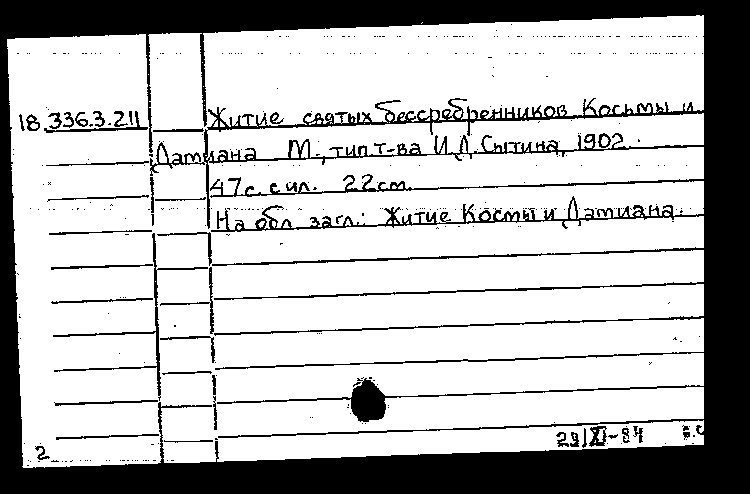 18.336.3.211 Житие святых бессребренников Косьмы и
Дамиана М., тип. т-ва И.Д. Сытина, 1902.
47с. с ил. 22см.
На обл. загл.: Житие Космы и Дамиана.
2 29/XI-84